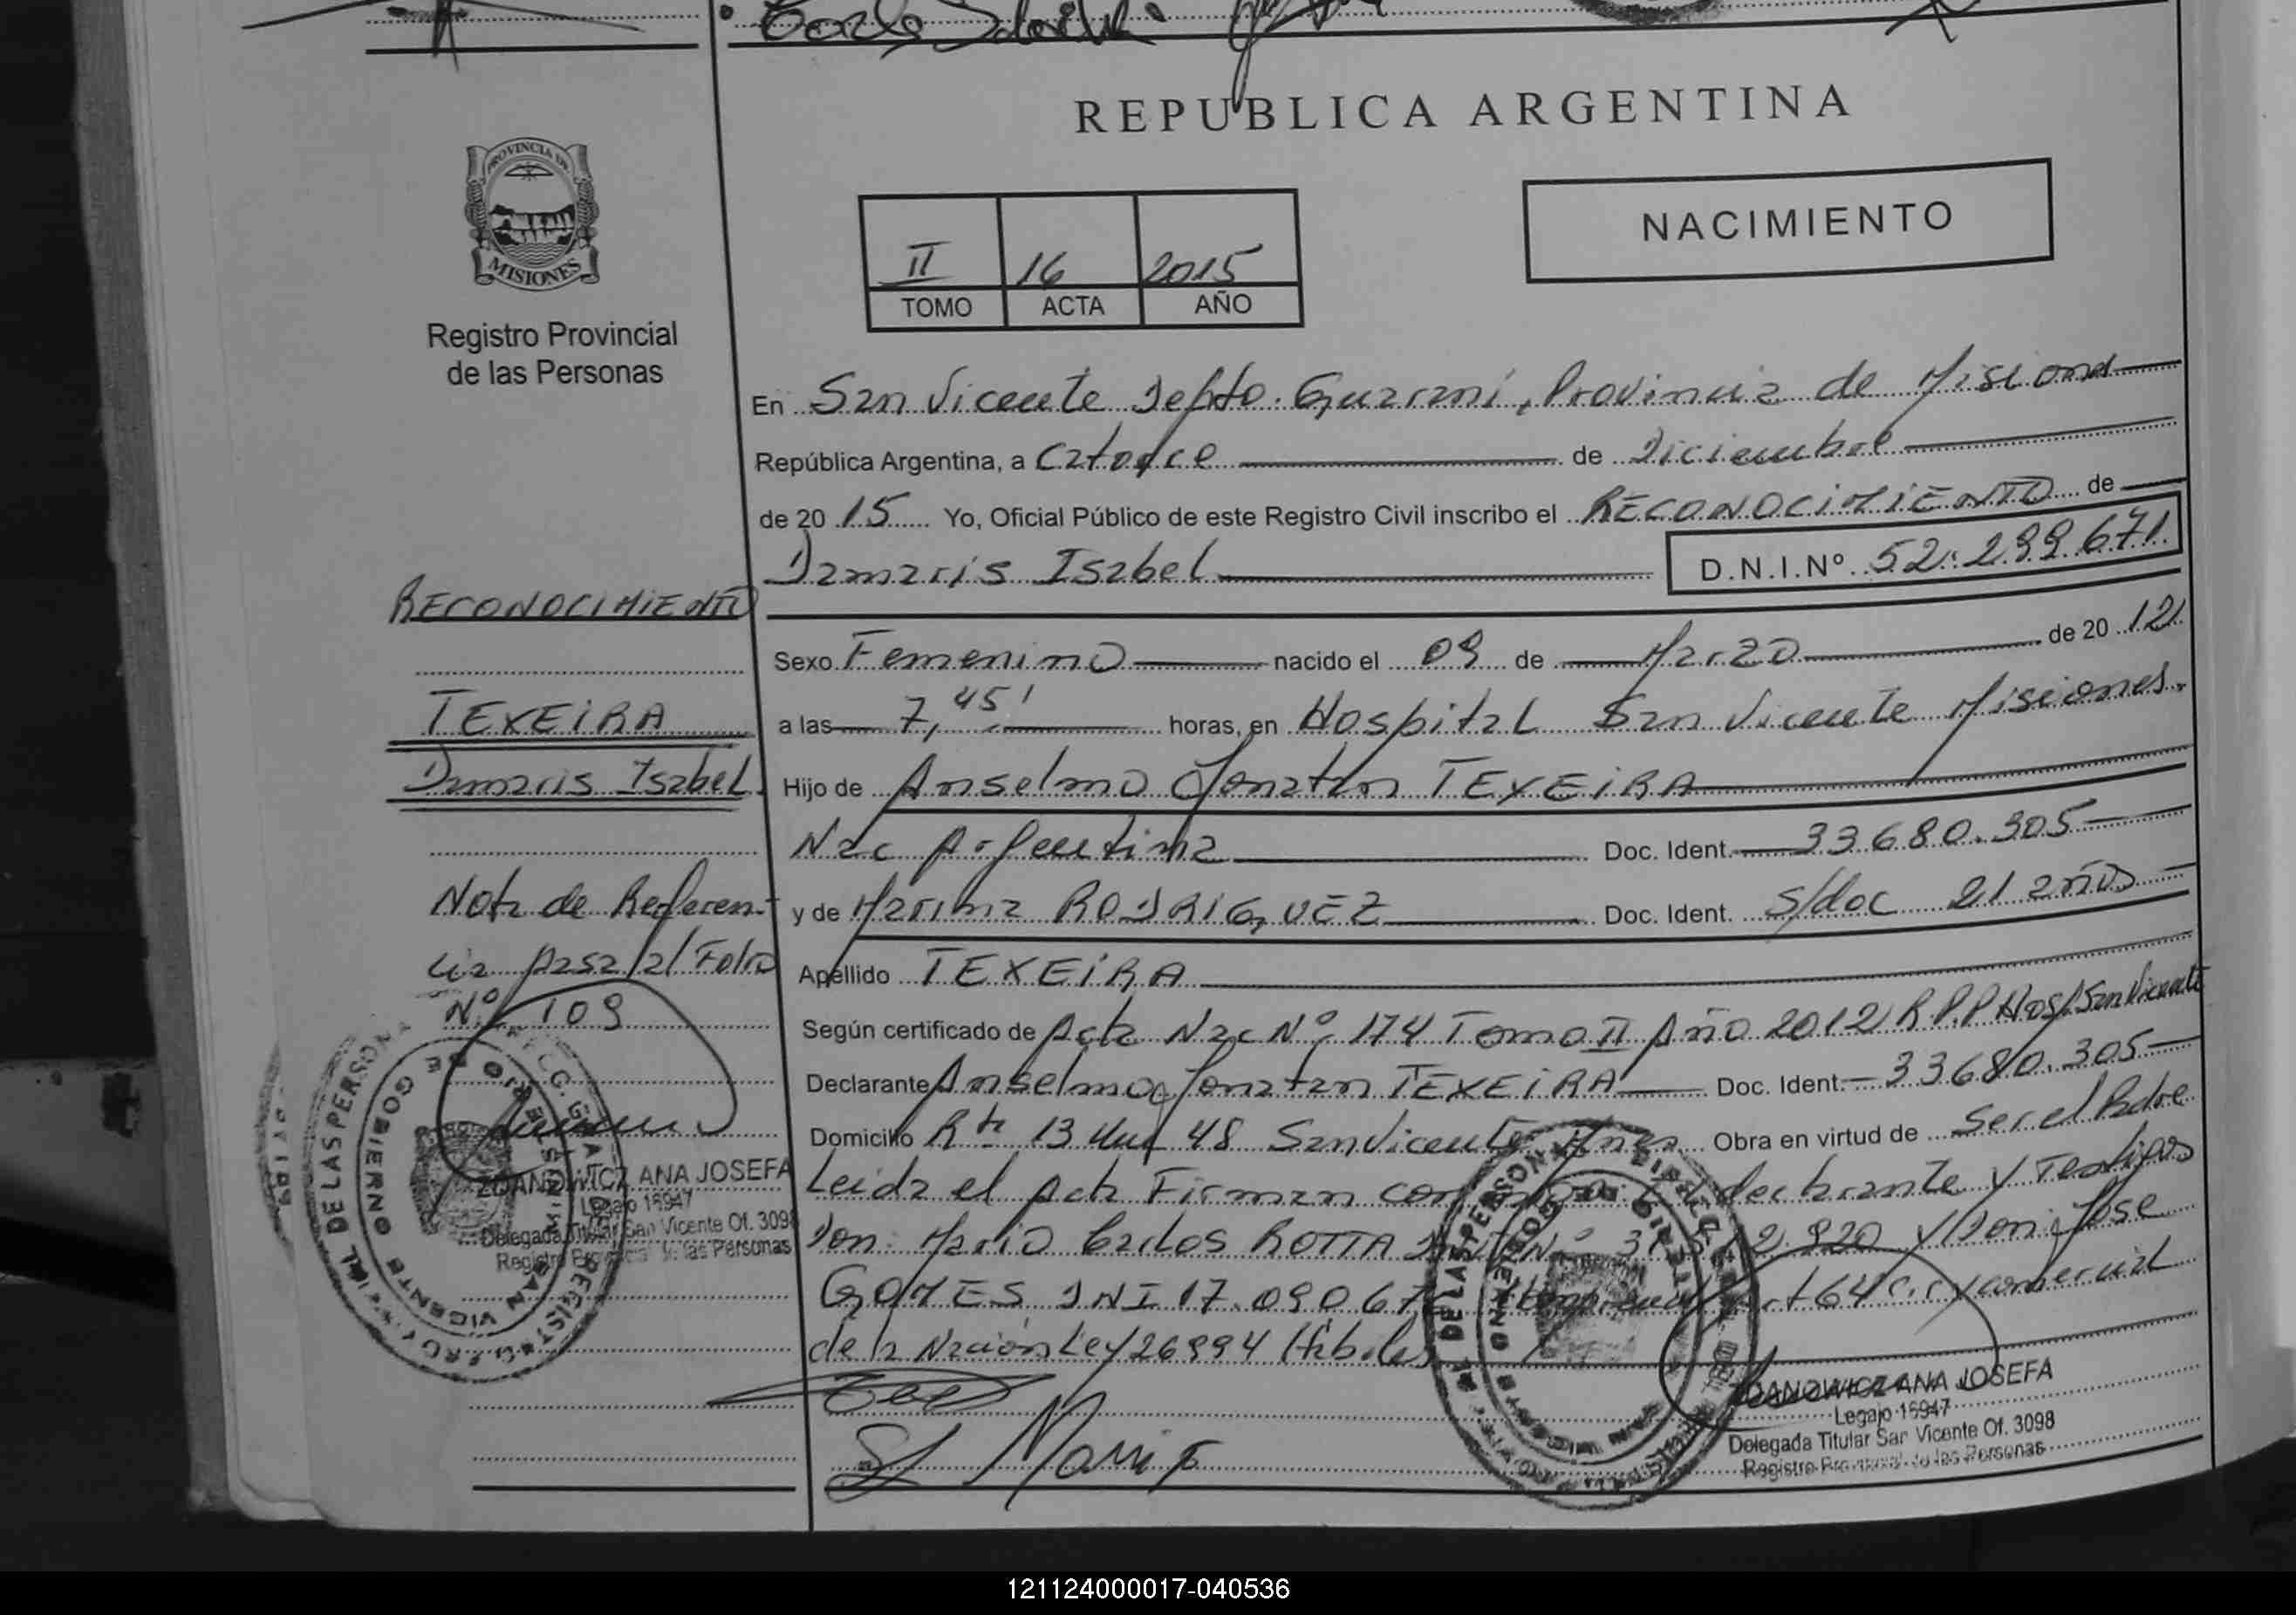 REPUBLICA ARGENTINA
PROVINCIA DE
MISIONES
Registro Provincial
de las Personas
NACIMIENTO
II 16 2015
TOMO ACTA AÑO
En San Vicente Depto. Guarani, Provincia de Misiones
República Argentina, a Catorce de Diciembre
de 2015 Yo, Oficial Público de este Registro Civil inscribo el RECONOCIMIENTO de
Damaris Isabel D.N.I.Nº 52.299.671
RECONOCIMIENTO
TEXEIRA
Damaris Isabel
Nota de Referen-
cia pasa al Folio
Nº 109
Sexo Femenino nacido el 09 de Marzo de 2012
a las 7,45' horas, en Hospital San Vicente Misiones.
Hijo de Anselmo Jonatan TEXEIRA
Nac Argentina Doc. Ident. 33680.305
y de Marina RODRIGUEZ Doc. Ident. s/doc 21 años
Apellido TEXEIRA
Según certificado de Acta Nac Nº 174 Tomo II Año 2012 R.P.P Hosp. San Vicente
Declarante Anselmo Jonatan TEXEIRA Doc. Ident. 33680.305
Domicilio Rta 13 48 San Vicente Obra en virtud de Ser el Padre
Leida el Acta Firman declarante y Testigos
Don: Mario Carlos ROTTA 920 y Don: Jose
GOMES DNI 17.090.67 64 C.C y comercial
de la Nación Ley 26994
ZDANOWICZ ANA JOSEFA
Legajo 16947
Delegada Titular San Vicente Of. 3098
Registro Provincial de las Personas
ZDANOWICZ ANA JOSEFA
Legajo 16947
Delegada Titular San Vicente Of. 3098
Registro Provincial de las Personas
121124000017-040536